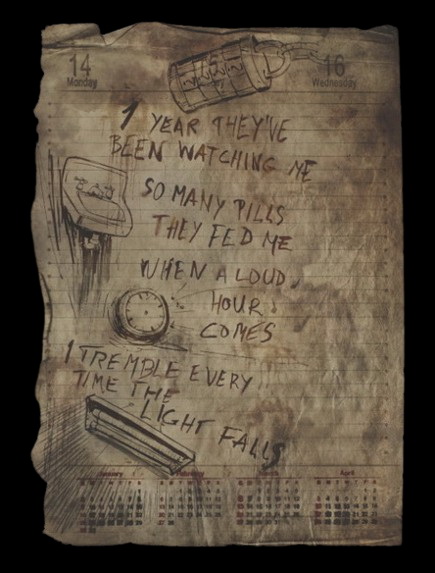 14
Monday
16
Wednesday
1 YEAR THEY'VE
BEEN WATCHING ME
SO MANY PILLS
THEY FED ME
WHEN A LOUD
HOUR
COMES
I TREMBLE EVERY
TIME THE
LIGHT FALLS
January
April